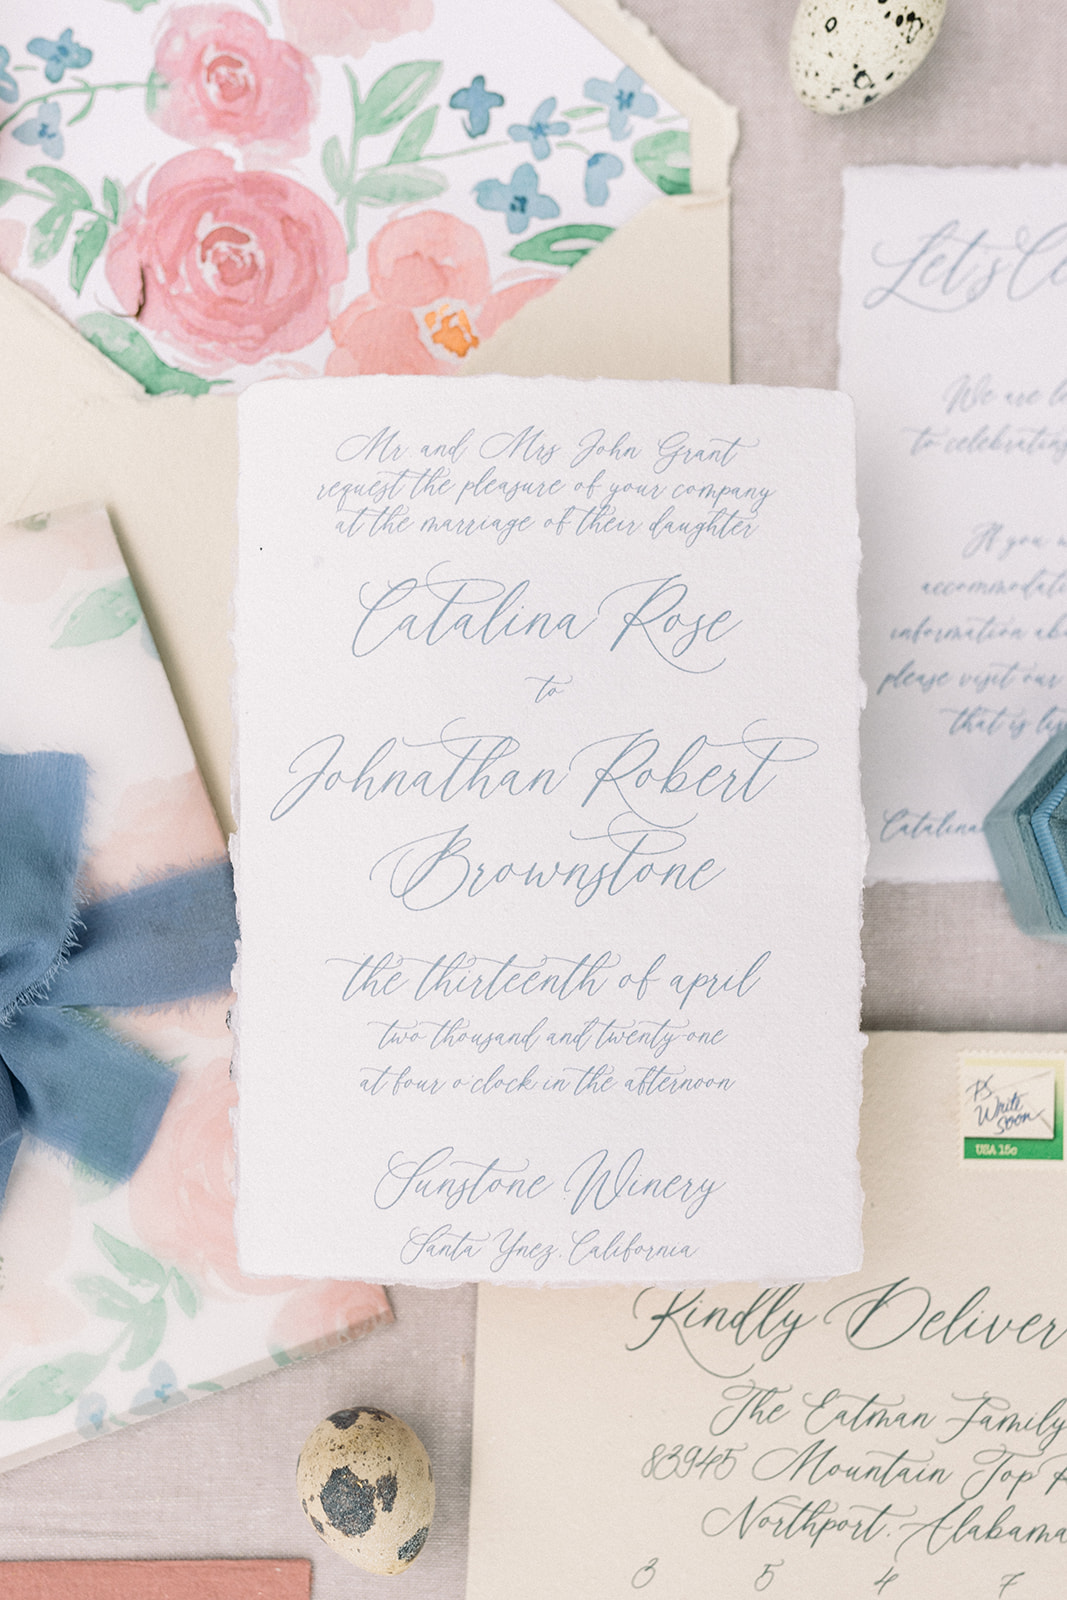 Mr and Mrs John Grant
request the pleasure of your company
at the marriage of their daughter
Catalina Rose
to
Johnathan Robert
Brownstone
the thirteenth of april
two thousand and twenty-one
at four o'clock in the afternoon
Sunstone Winery
Santa Ynez, California
Let's
We are
to celebrating
If you
accommodatio
information abo
please visit our
that is
Catalina
PS
Write
soon
USA 15c
Kindly Deliver
The Eatman Family
83945 Mountain Top
Northport, Alabama
3 5 4 7